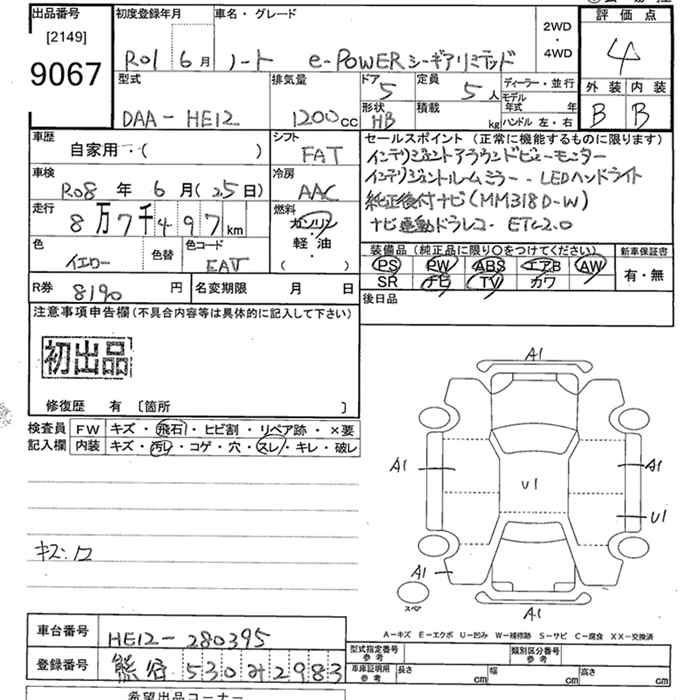 出品番号
[2149]
9067
初度登録年月
R01 6月
車名・グレード
ノート e-POWERシーギアリミテッド
2WD
・
4WD
評価点
4
外装 内装
B B
型式
DAA-HE12
排気量
1200cc
ドア
5
定員
5人
形状
HB
積載
kg
ディーラー・並行
モデル年式 年
ハンドル 左・右
車歴
自家用・( )
シフト
FAT
車検
R08年6月(25日)
冷房
AAC
走行
8万7千497km
燃料
ガソリン
・
軽・油
( )
色
イエロー
色替
色コード
EAV
セールスポイント(正常に機能するものに限ります)
インテリジェントアラウンドビューモニター
インテリジェントルームミラー・LEDヘッドライト
純正後付ナビ(MM318D-W)
ナビ連動ドラレコ・ETC2.0
装備品(純正品に限り○をつけてください)
PS PW ABS エアB AW
SR ナビ TV カワ
新車保証書
有・無
R券
8190円
名変期限 月 日
後日品
注意事項申告欄(不具合内容等は具体的に記入して下さい)
初出品
修復歴 有 〔箇所 〕
検査員記入欄
FW キズ・飛石・ヒビ割・リペア跡・×要
内装 キズ・汚レ・コゲ・穴・スレ・キレ・破レ
キズ・凹
A1
A1
A1
U1
U1
A1
スペア
A1
A-キズ E-エクボ U-凹み W-補修跡 S-サビ C-腐食 XX-交換済
車台番号
HE12-280395
登録番号
熊谷 530 み 2983
型式指定番号
参考
類別区分番号
参考
車庫証明用
参考
長さ cm
幅 cm
高さ cm
希望出品コーナー